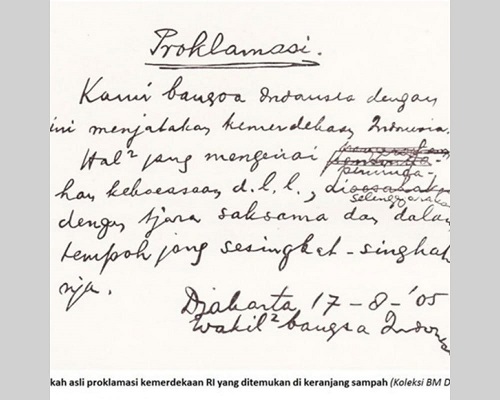 Proklamasi.
Kami bangsa Indonesia dengan
ini menjatakan kemerdekaan Indonesia.
Hal² jang mengenai
peminda-
han kekoeasaan d.l.l.,
diselenggarakan
dengan tjara saksama dan dalam
tempoh jang sesingkat-singkat
nja.
Djakarta 17-8-'05
Wakil² bangsa Indonesia
kah asli proklamasi kemerdekaan RI yang ditemukan di keranjang sampah (Koleksi BM D